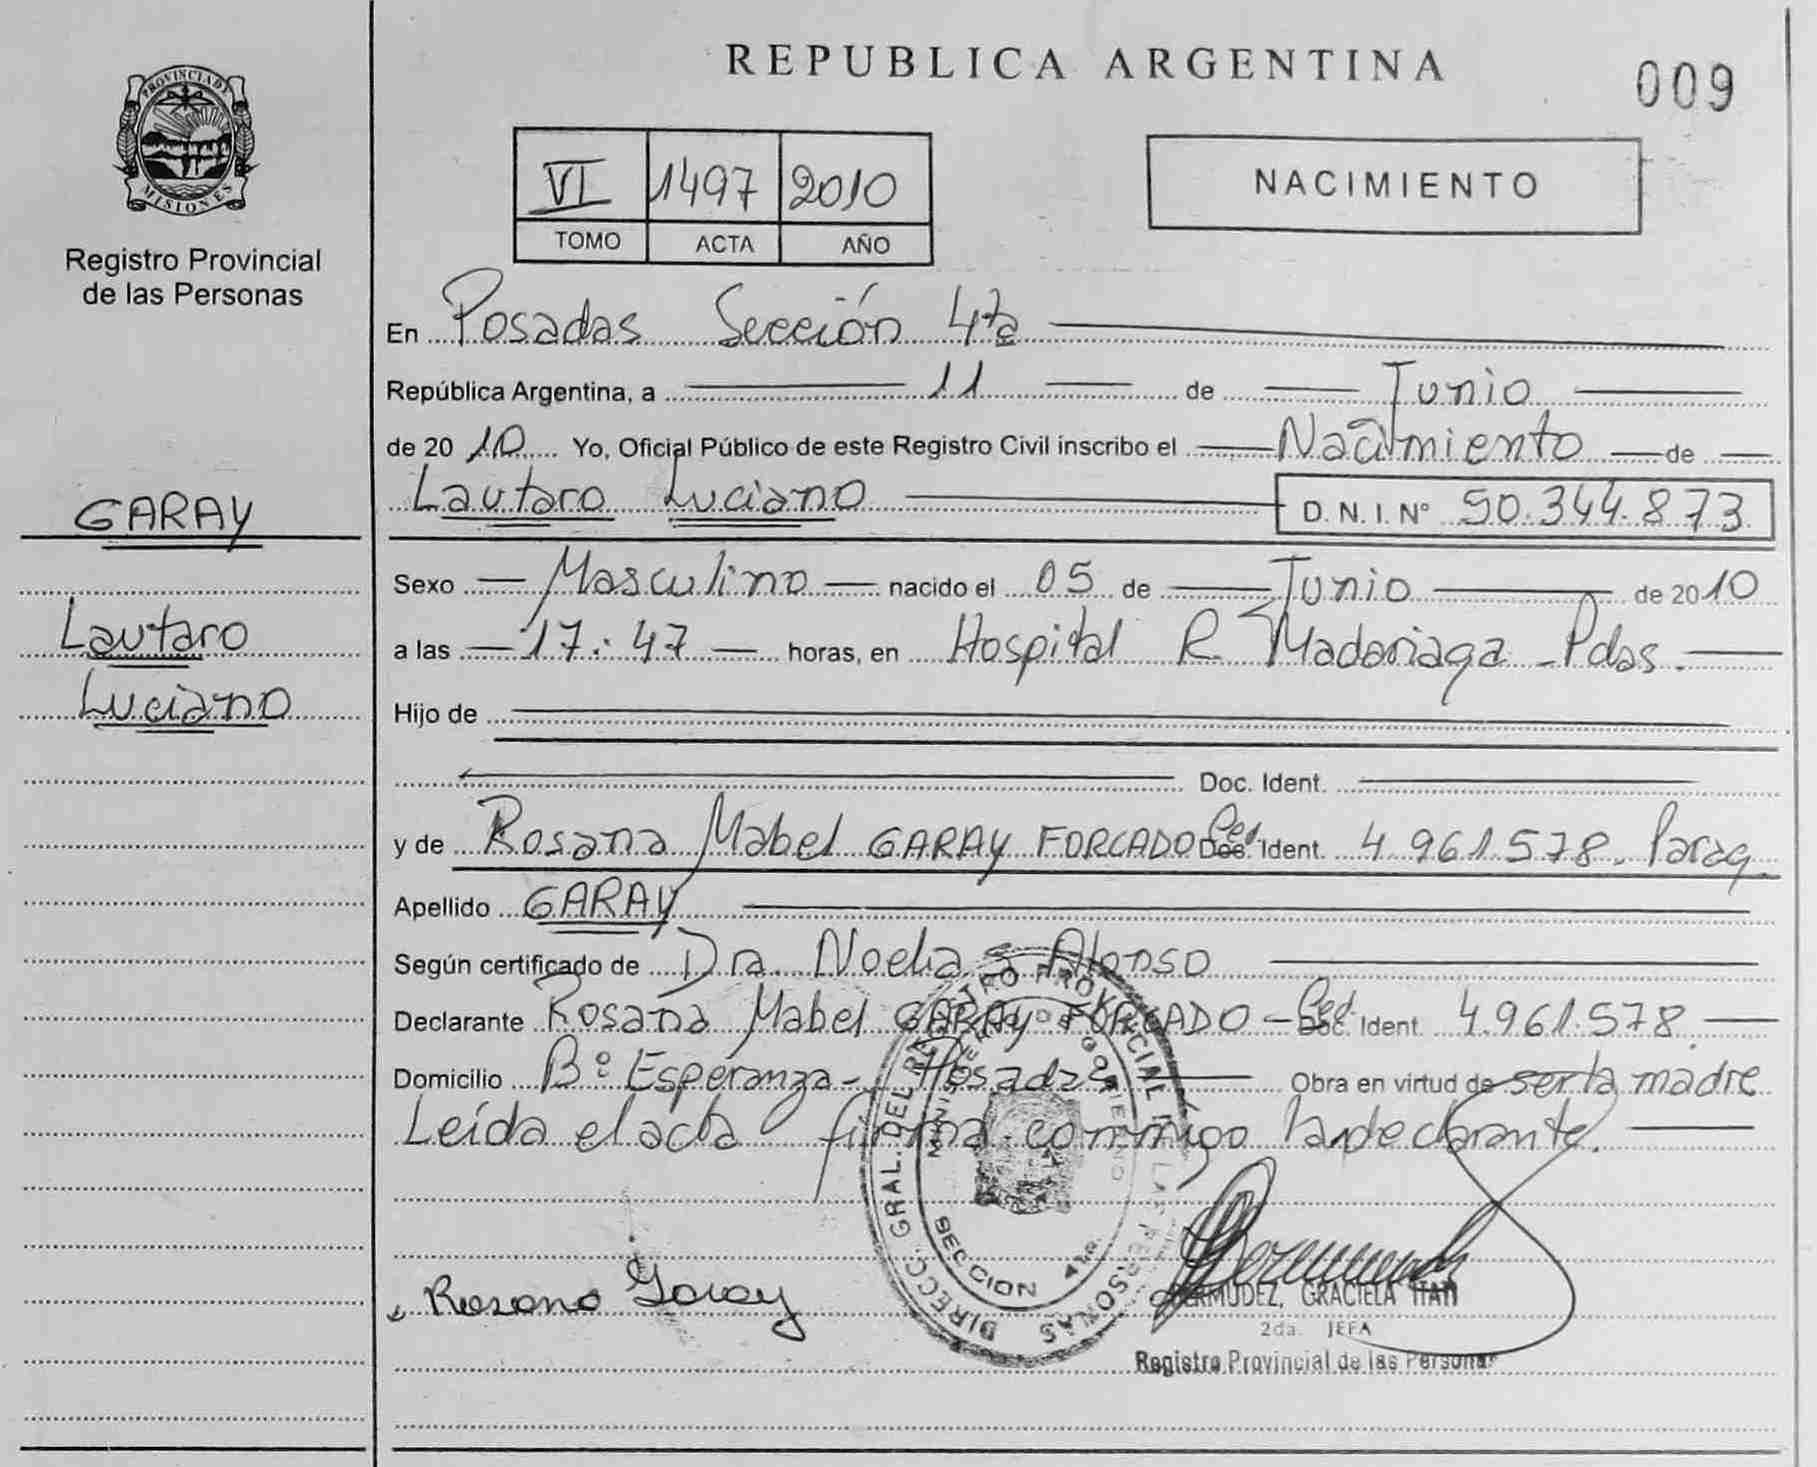 REPUBLICA ARGENTINA
009
PROVINCIA D
MISIONES
Registro Provincial
de las Personas
VI 1497 2010
TOMO ACTA AÑO
NACIMIENTO
En Posadas Sección 4ta
República Argentina, a 11 de Junio
de 2010 Yo, Oficial Público de este Registro Civil inscribo el Nacimiento de
Lautaro Luciano D.N.I. N° 50.344.873
GARAY
Lautaro
Luciano
Sexo Masculino nacido el 05 de Junio de 2010
a las 17:47 horas, en Hospital R. Madariaga - Pdas.
Hijo de
Doc. Ident.
y de Rosana Mabel GARAY FORCADO Ced. Doc. Ident. 4.961.578. Parag.
Apellido GARAY
Según certificado de Dra. Noelia Alonso
Declarante Rosana Mabel GARAY FORCADO - Ced. Doc. Ident. 4.961.578.
Domicilio B° Esperanza - Posadas Obra en virtud de ser la madre
Leída el acta firma conmigo la declarante.
DIRECC. GRAL. DEL REGISTRO PROVINCIAL DE LAS PERSONAS
MINISTERIO DE GOBIERNO
SECCION 4ta.
Rosana Garay
BERMUDEZ, GRACIELA ITATI
2da. JEFA
Registro Provincial de las Personas